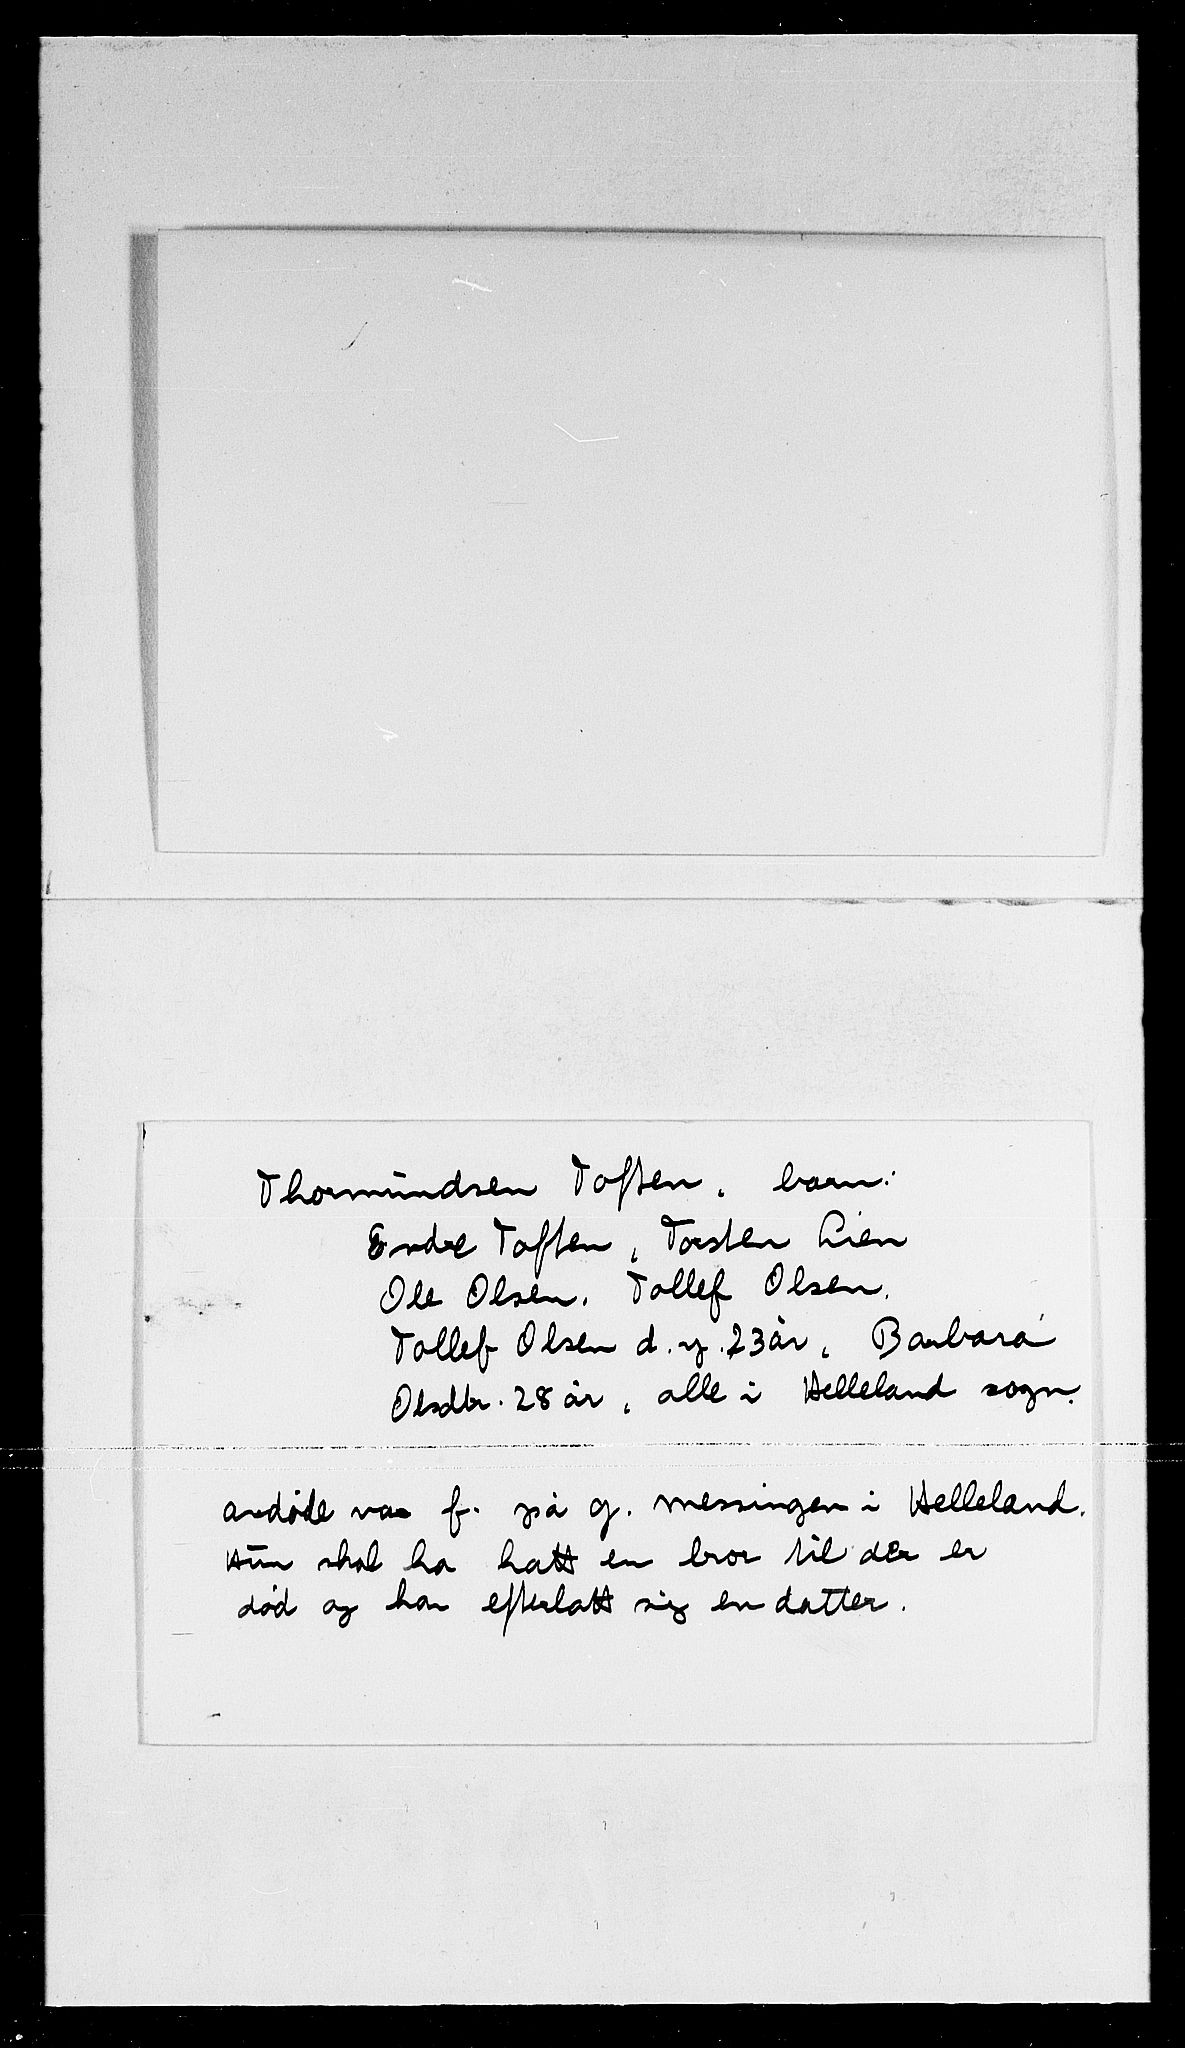 Thormundsen Toften, barn:
Endre Toften, Torsten Lien
Ole Olsen. Tollef Olsen.
Tollef Olsen d. y. 23 år, Barbara
Olsdtr. 28 år, alle i Helleland sogn.
avdøde var f. på g. messingen i Helleland.
Hun skal ha hatt en bror til der er
død og har efterlatt sig en datter.